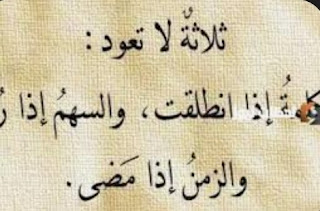 ثلاثةٌ لا تعود :
كلمةُ إذا انطلقت، والسهمُ إذا
والزمنُ إذا مَضى.